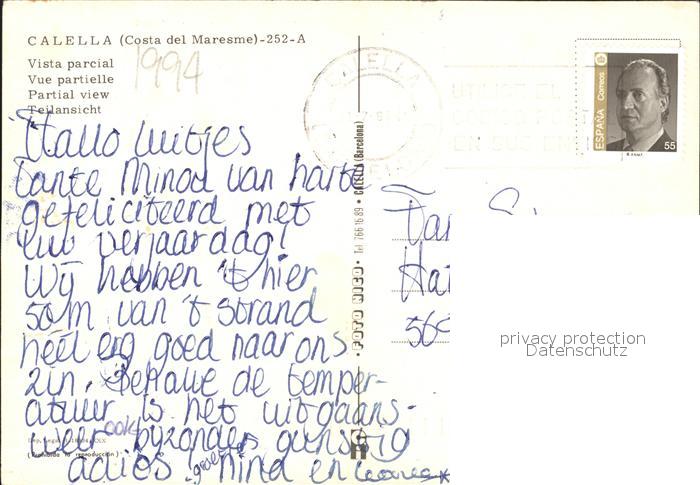 CALELLA (Costa del Maresme)-252-A
Vista parcial
Vue partielle
Partial view
Teilansicht
1994
Hallo luitjes
Tante Minod van harte
gefeliciteerd met
uw verjaardag!
Wij hebben 't hier
50m van 't strand
heel erg goed naar ons
zin. Behalve de temper-
atuur is het uitgaans-
weer ook bijzonder gunstig
adios groetjes Nina en
(Prohibida la reproducción)
FOTO RICO • Tel 766 16 89 • CALELLA (Barcelona)
CALELLA
UTILICE EL
EN SUS
ESPAÑA
Correos
55
Fam
Ha
56
privacy protection
Datenschutz